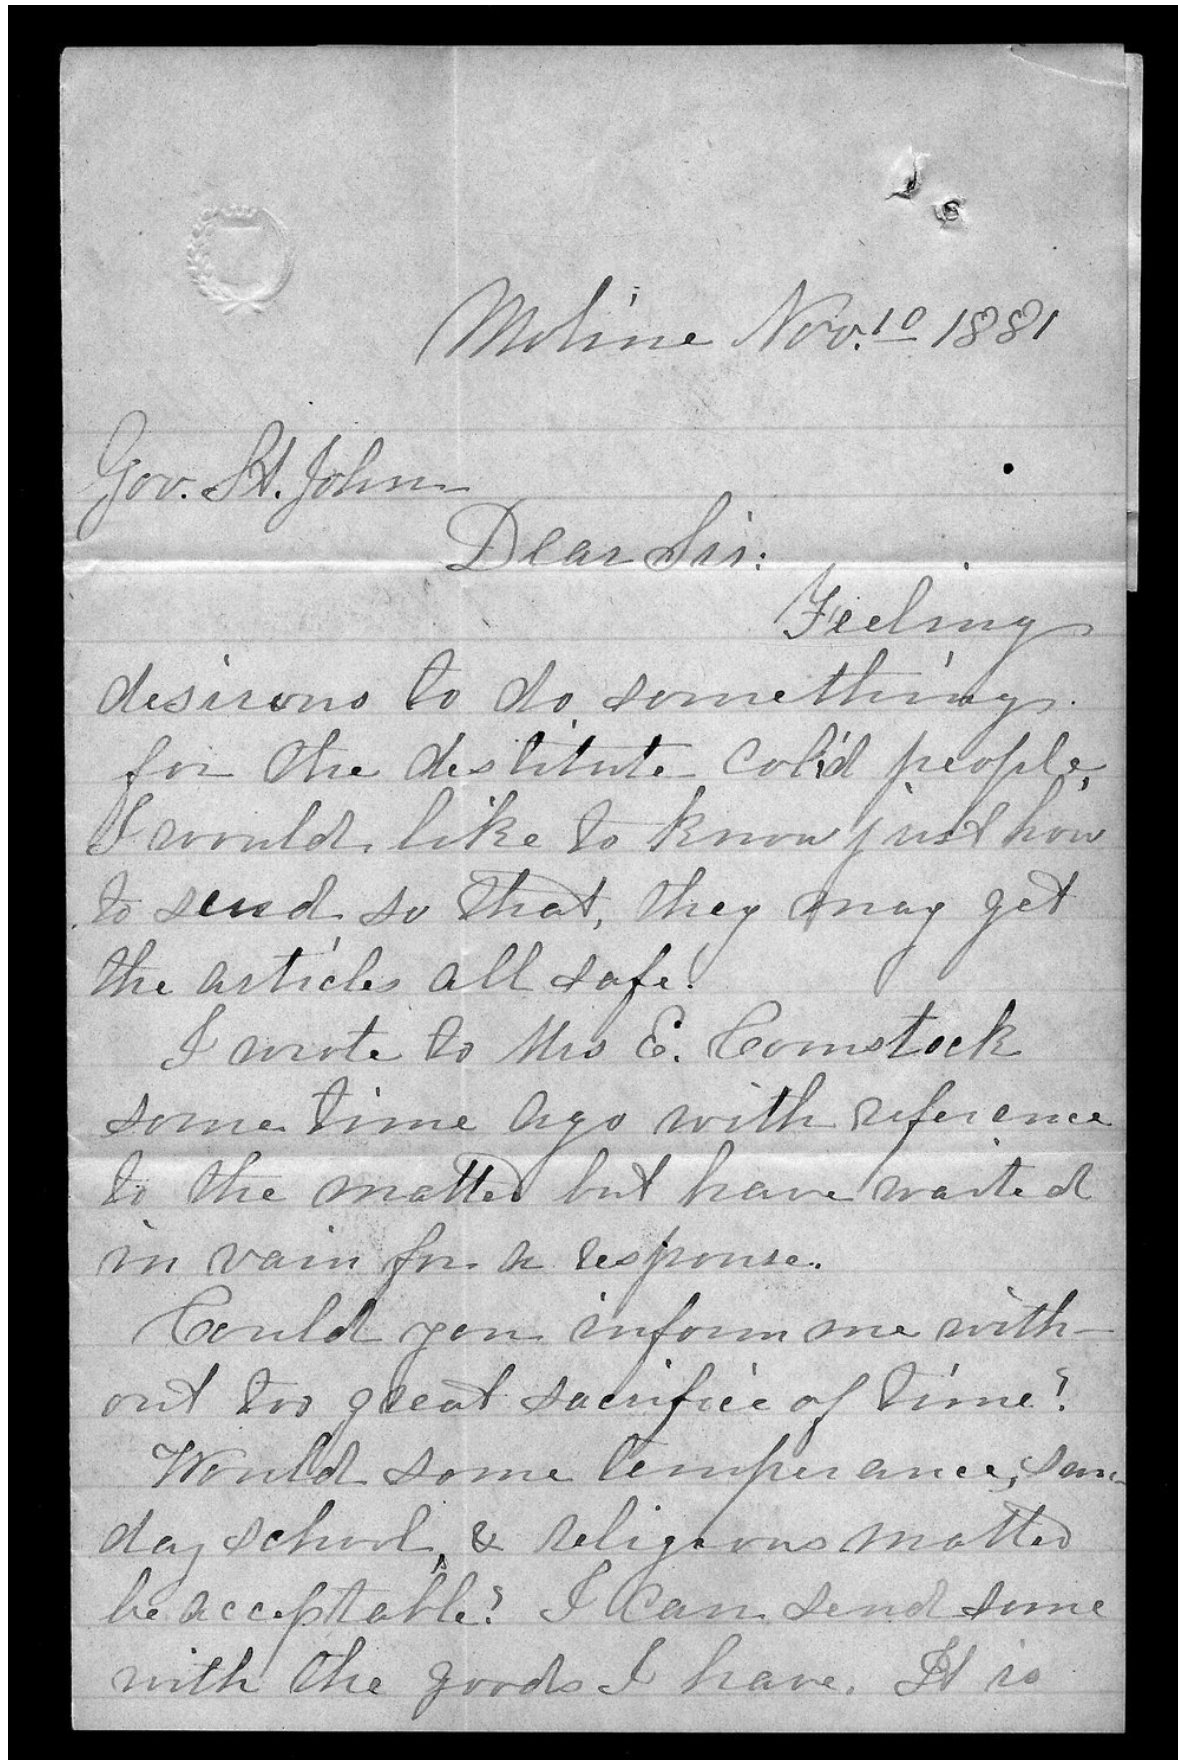 Moline Nov. 10 1881
Gov. St. John
Dear Sir:
Feeling
desirous to do something
for the destitute col'd people,
I would like to know just how
to send so that, they may get
the articles all safe.
I wrote to Mrs E. Comstock
some time ago with reference
to the matter but have waited
in vain for a response.
Could you inform me with-
out too great sacrifice of time?
Would some temperance, sun-
day school, & religious matter
be acceptable? I can send some
with the goods I have. It is